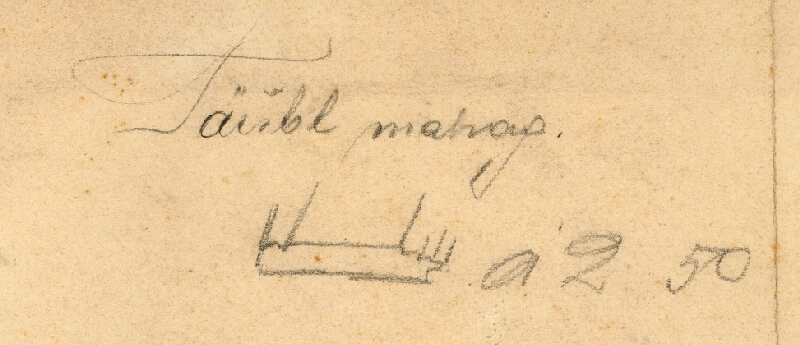 Täubl mahag.
à 2 50